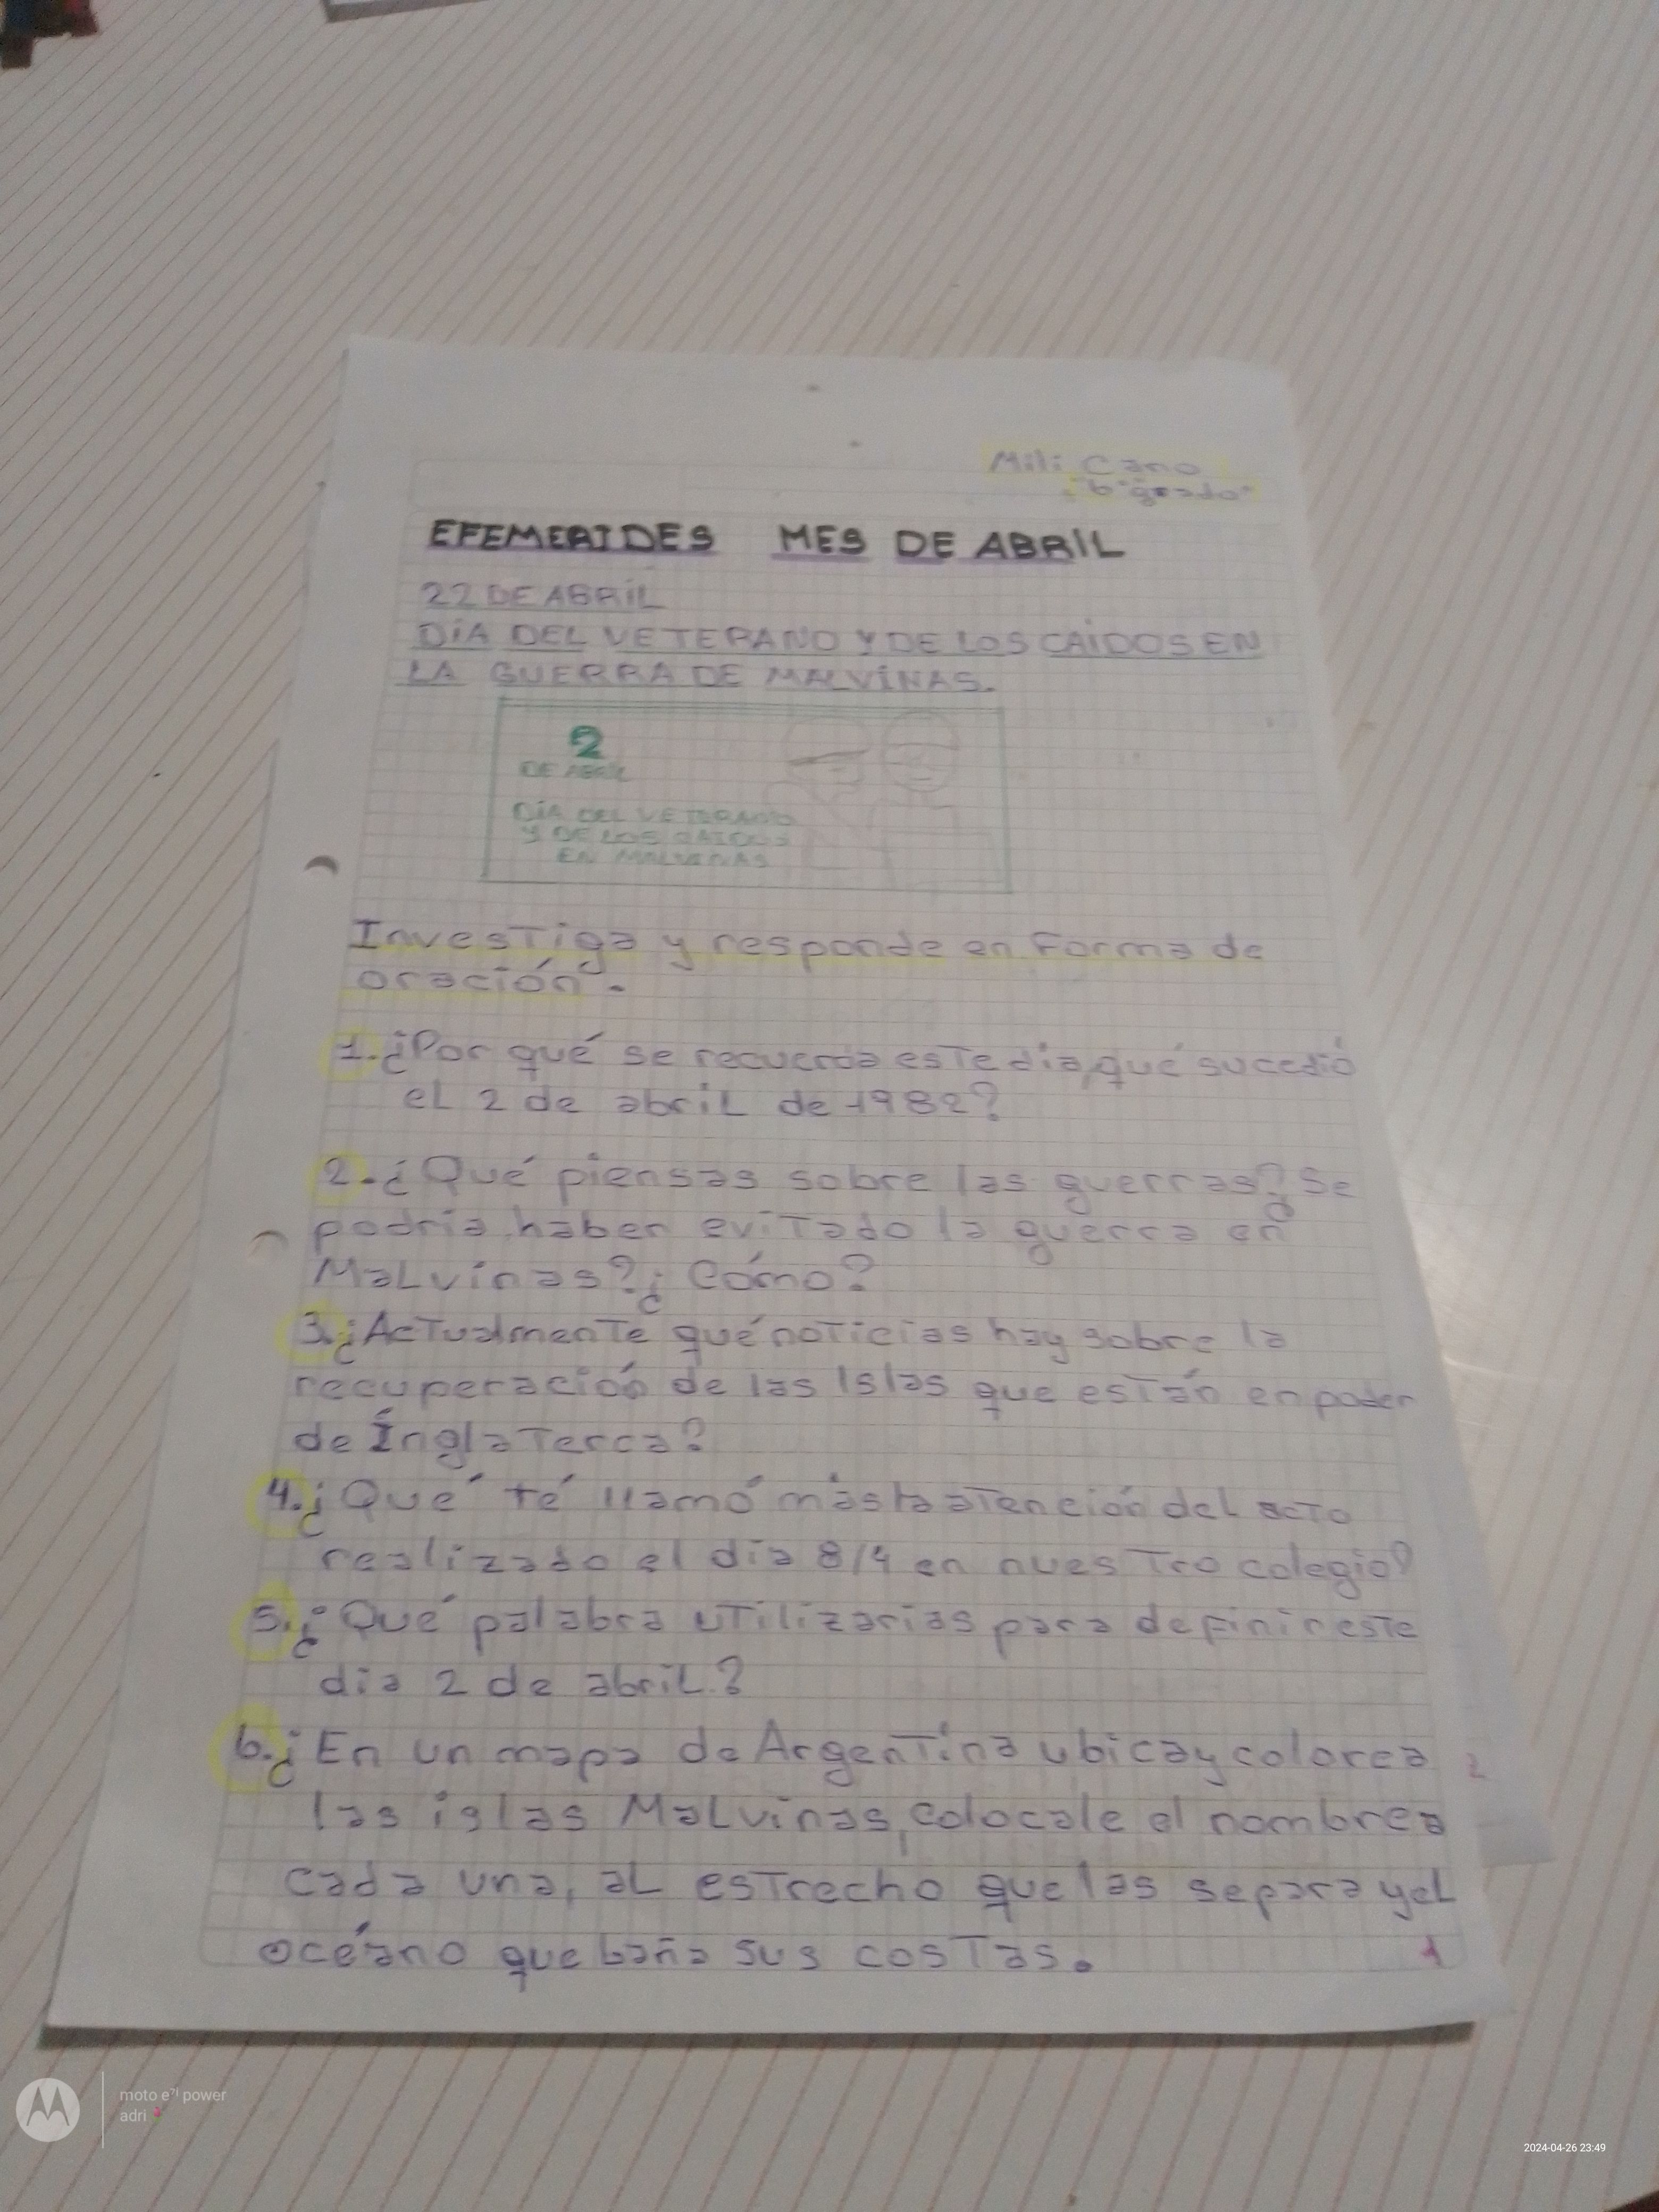 Mili Cano
"6°grado"
EFEMERIDES MES DE ABRIL
22 DE ABRIL
DIA DEL VETERANO Y DE LOS CAIDOS EN
LA GUERRA DE MALVINAS.
2
DE ABRIL
DIA DEL VETERANO
Y DE LOS CAIDOS
EN MALVINAS
Investiga y responde en forma de
oración.
1.¿Por qué se recuerda este dia, qué sucedió
el 2 de abril de 1982?
2.¿Qué piensas sobre las guerras?¿Se
podria haber evitado la guerra en
Malvinas?¿Cómo?
3.¿Actualmente qué noticias hay sobre la
recuperación de las Islas que están en poder
de Inglaterra?
4.¿Qué té llamó más la atención del acto
realizado el dia 8/4 en nuestro colegio?
5.¿Qué palabra utilizarias para definir este
dia 2 de abril.?
6.¿En un mapa de Argentina ubica y colorea
las islas Malvinas, colocale el nombre a
cada una, al estrecho que las separa y el
océano que baña sus costas.
1
2
moto e⁷ⁱ power
adri
2024-04-26 23:49